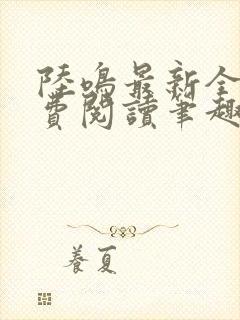 陸鳴最新全
費閱讀筆趣
養夏